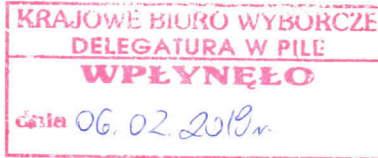 KRAJOWE BIURO WYBORCZE
DELEGATURA W PILE
WPŁYNĘŁO
dnia 06. 02. 2019r.